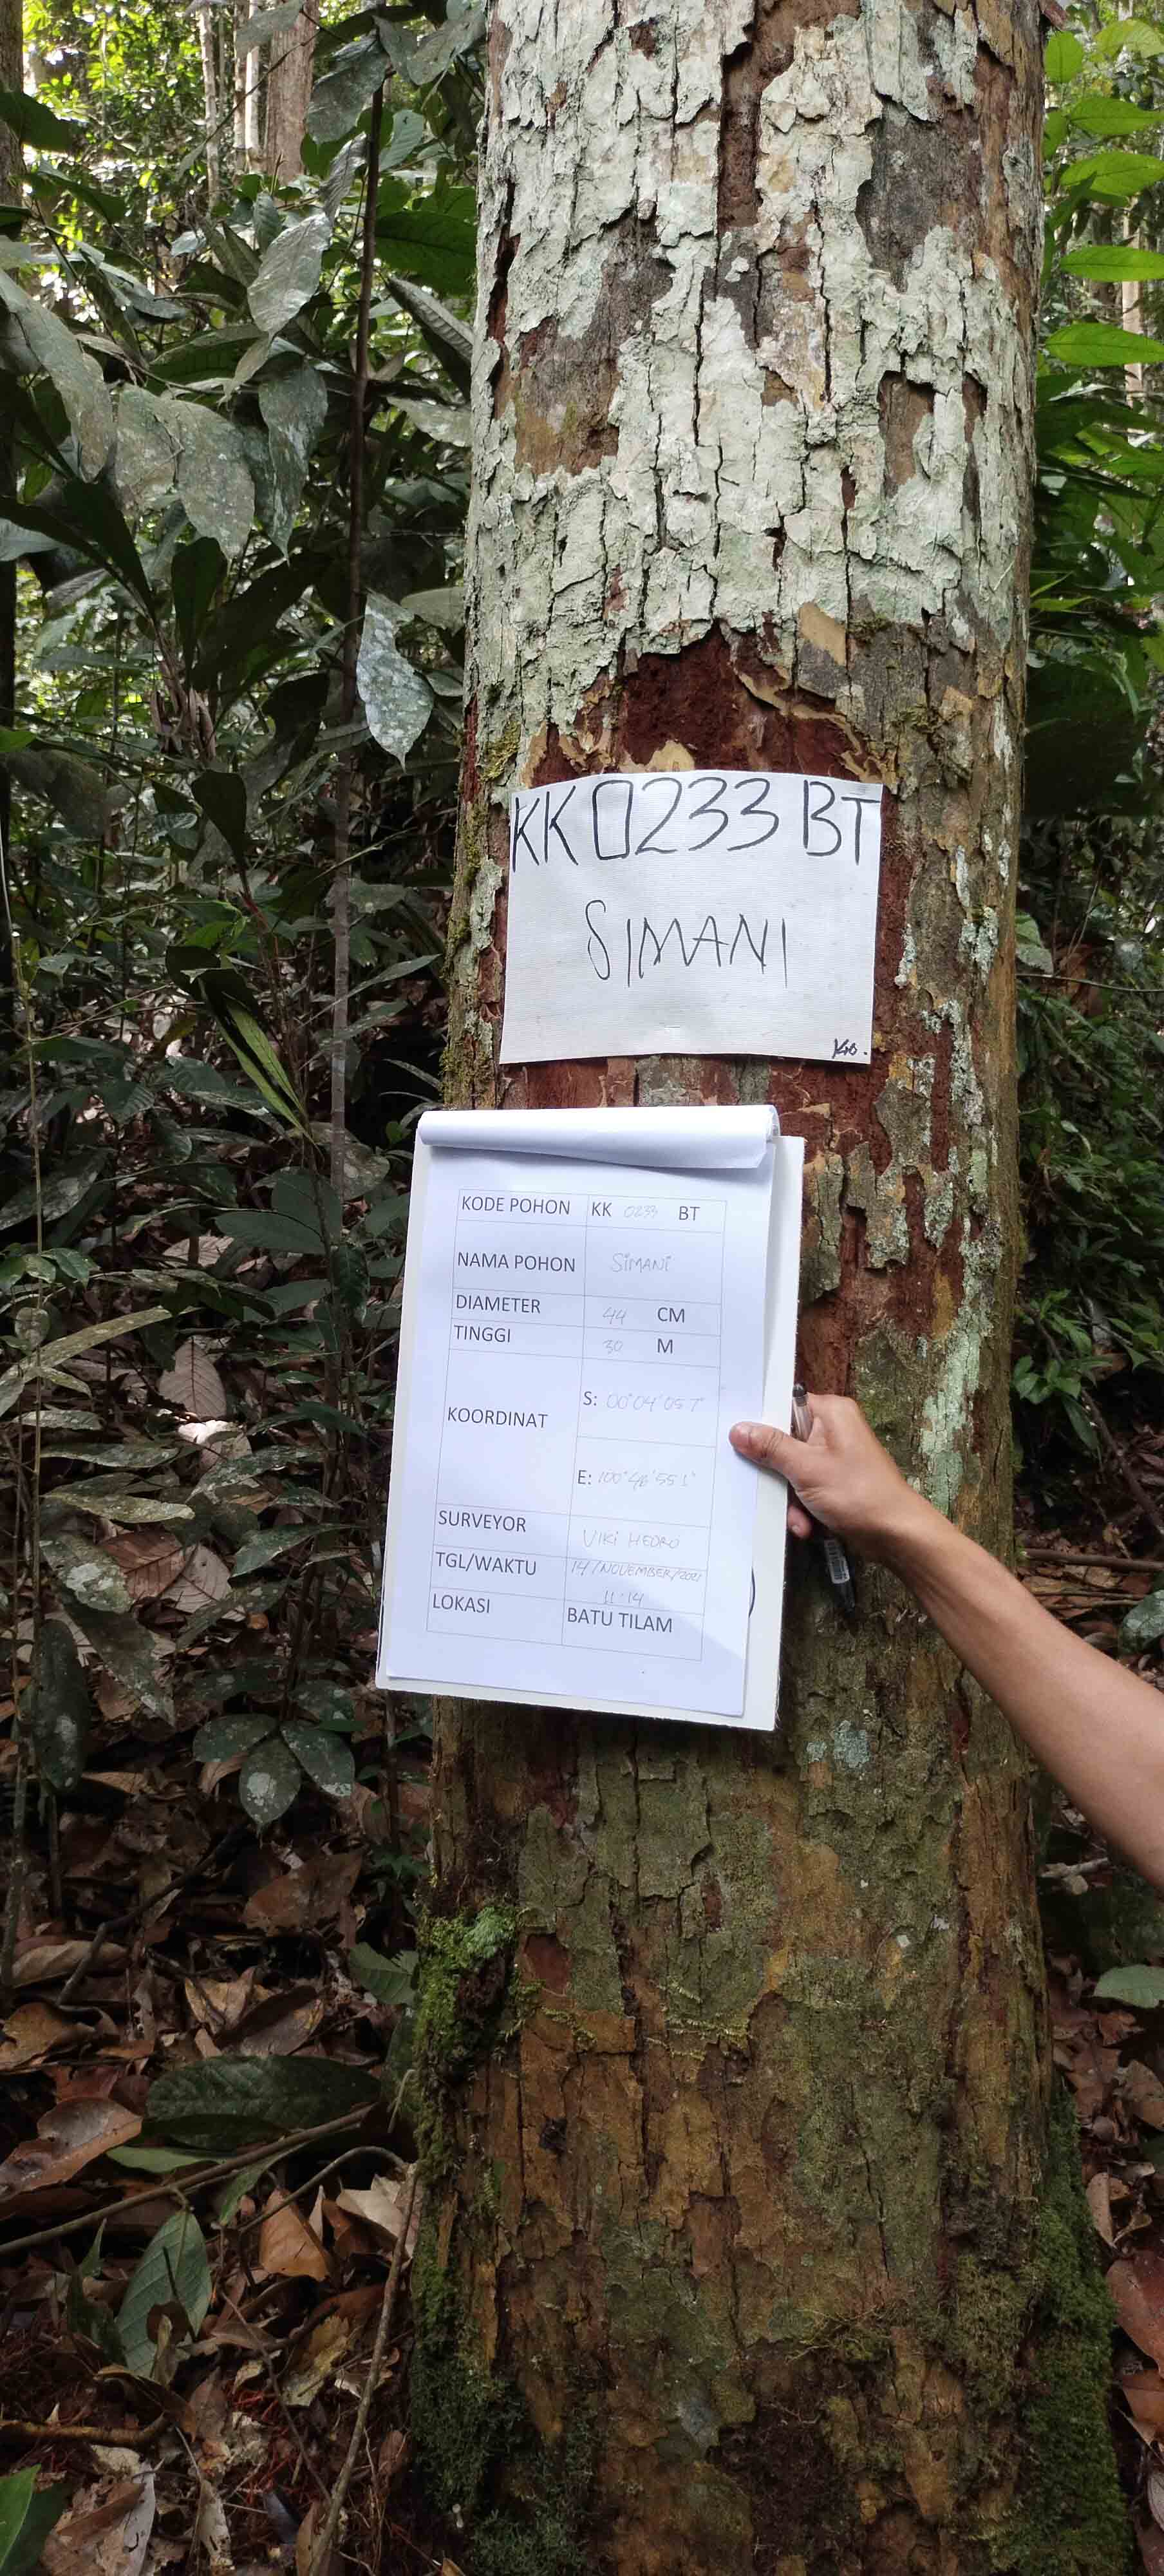 KK 0233 BT
SIMANI
KODE POHON KK 0233 BT
NAMA POHON SIMANI
DIAMETER 44 CM
TINGGI 30 M
KOORDINAT
S: 00°04'05.7"
E: 100°46'55.1"
SURVEYOR VIKI HEDRO
TGL/WAKTU 14/NOVEMBER/2021
11:14
LOKASI BATU TILAM